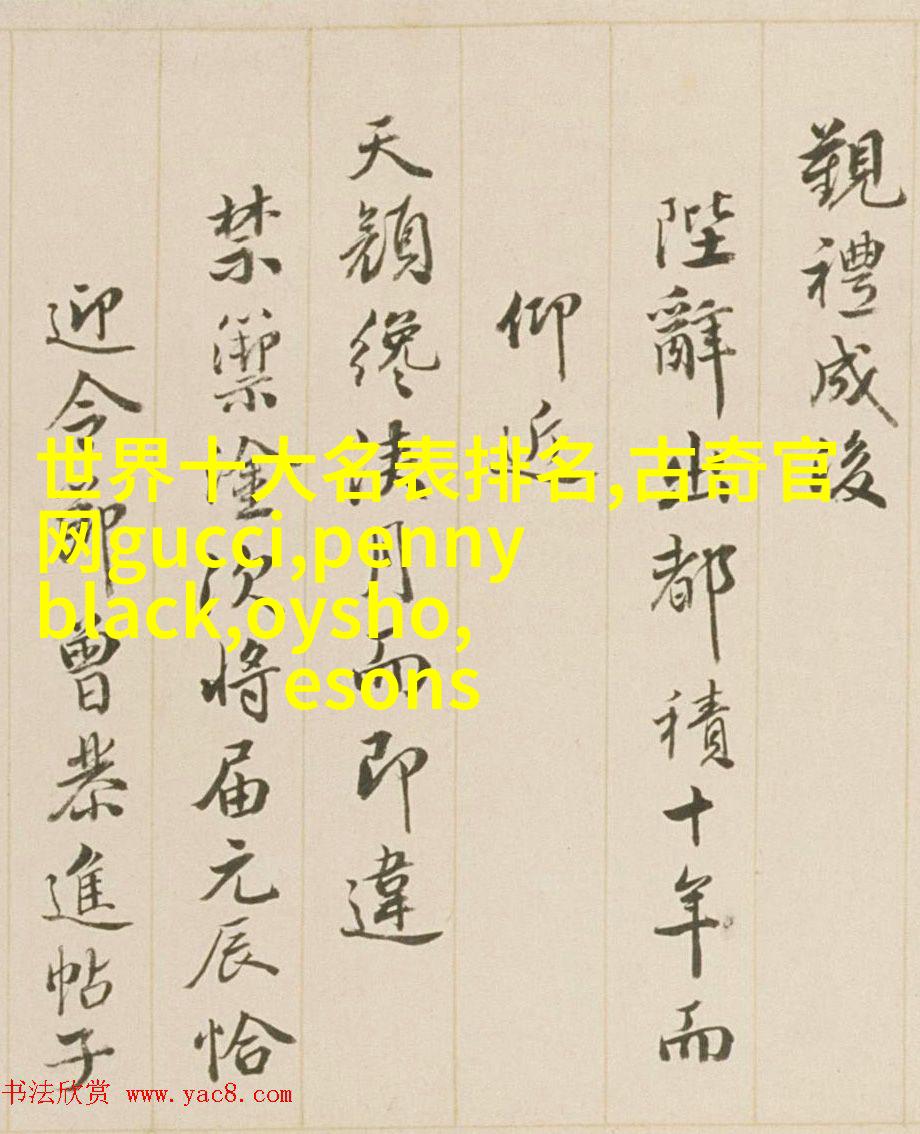 覲禮成後
陛辭出都積十年而
仰近
天顔纔浹月而即違
禁籞塗次將届元辰恰
迎令節曾恭進帖子
世界十大名表排名,古奇官
网gucci,penny
black,oysho,
esons
书法欣赏 www.yac8.com